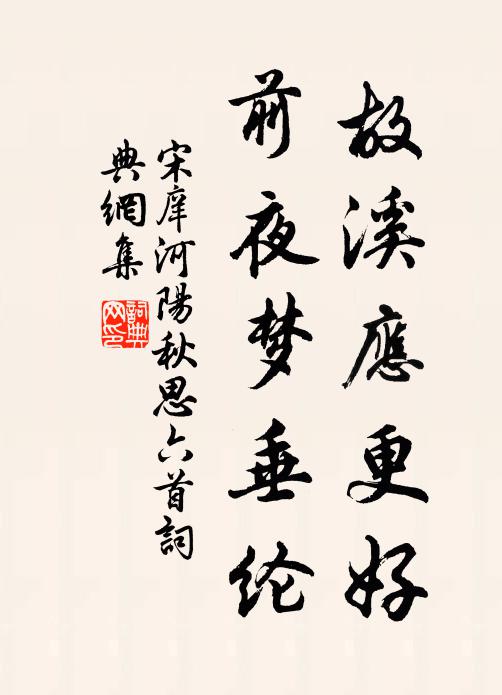 故溪應更好
前夜梦垂纶
宋庠河陽秋思六首詞
典網集
詞典
网印